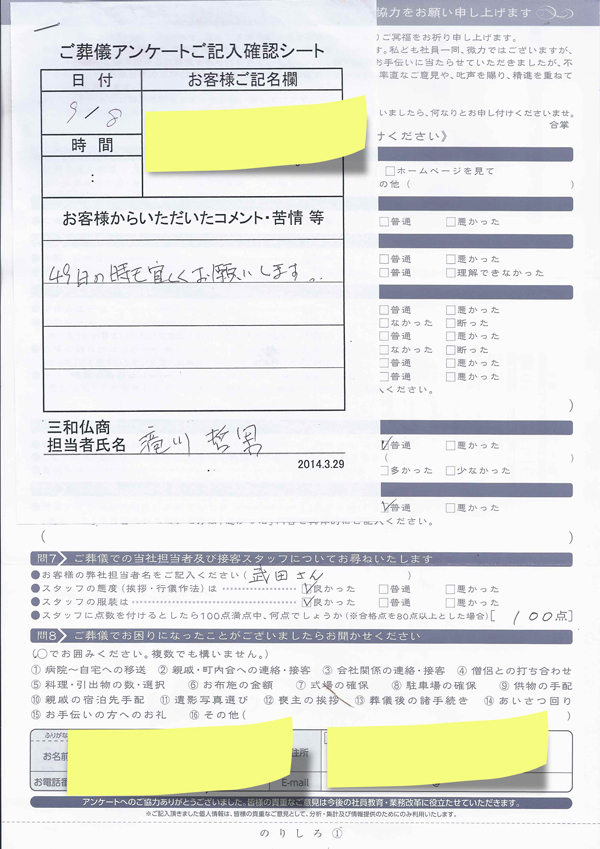 協力をお願い申し上げます
ご冥福をお祈り申し上げます。
す。私ども社員一同、微力ではございますが、
お手伝いに当たらせていただきましたが、不
率直なご意見や、叱声を賜り、精進を重ねて
いましたら、何なりとお申し付けくださいませ。
合掌
けください》
□ホームページを見て
の他 ( )
□普通 □悪かった
□普通 □悪かった
□普通 □理解できなかった
□普通 □悪かった
□なかった □断った
□普通 □悪かった
□なかった □断った
□普通 □悪かった
□普通 □悪かった
ください。
)
☑普通 □悪かった
(
□多かった □少なかった
☑普通 □悪かった
ご記入ください。
( )
ご葬儀アンケートご記入確認シート
日 付 お客様ご記名欄
9/8
時 間
:
お客様からいただいたコメント・苦情 等
49日の時も宜しくお願いします。
三和仏商
担当者氏名 滝川 哲男
2014.3.29
問7 ご葬儀での当社担当者及び接客スタッフについてお尋ねいたします
●お客様の弊社担当者名をご記入ください ( 武田さん )
●スタッフの態度(挨拶・行儀作法)は ☑良かった □普通 □悪かった
●スタッフの服装は ☑良かった □普通 □悪かった
●スタッフに点数を付けるとしたら100点満点中、何点でしょうか(※合格点を80点以上とした場合) [ 100点]
問8 ご葬儀でお困りになったことがございましたらお聞かせください
(○でお囲みください。複数でも構いません。)
①病院〜自宅への移送 ②親戚・町内会への連絡・接客 ③会社関係の連絡・接客 ④僧侶との打ち合わせ
⑤料理・引出物の数・選択 ⑥お布施の金額 ⑦式場の確保 ⑧駐車場の確保 ⑨供物の手配
⑩親戚の宿泊先手配 ⑪遺影写真選び ⑫喪主の挨拶 ⑬葬儀後の諸手続き ⑭あいさつ回り
⑮お手伝いの方へのお礼 ⑯その他( )
ふりがな
お名前 住所
お電話番 E-mail
アンケートへのご協力ありがとうございました。皆様の貴重なご意見は今後の社員教育・業務改革に役立たせていただきます。
※ご記入頂きました個人情報は、皆様の貴重なご意見として、分析・集計及び情報提供のためにのみ利用いたします。
のりしろ①